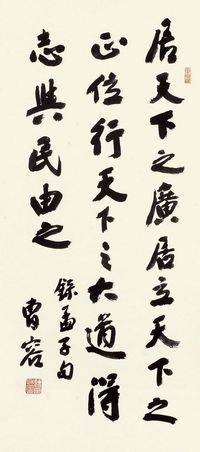 居天下之廣居立天下之
正位行天下之大道得
志與民由之
錄孟子句
曹容